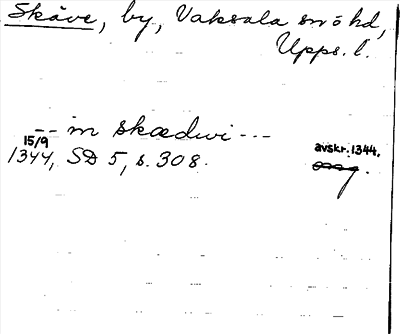 Skäve, by, Vaksala sn o hd,
Upps. l.
-- in skædwi ---
15/9
1344, SD 5, s. 308. avskr. 1344.